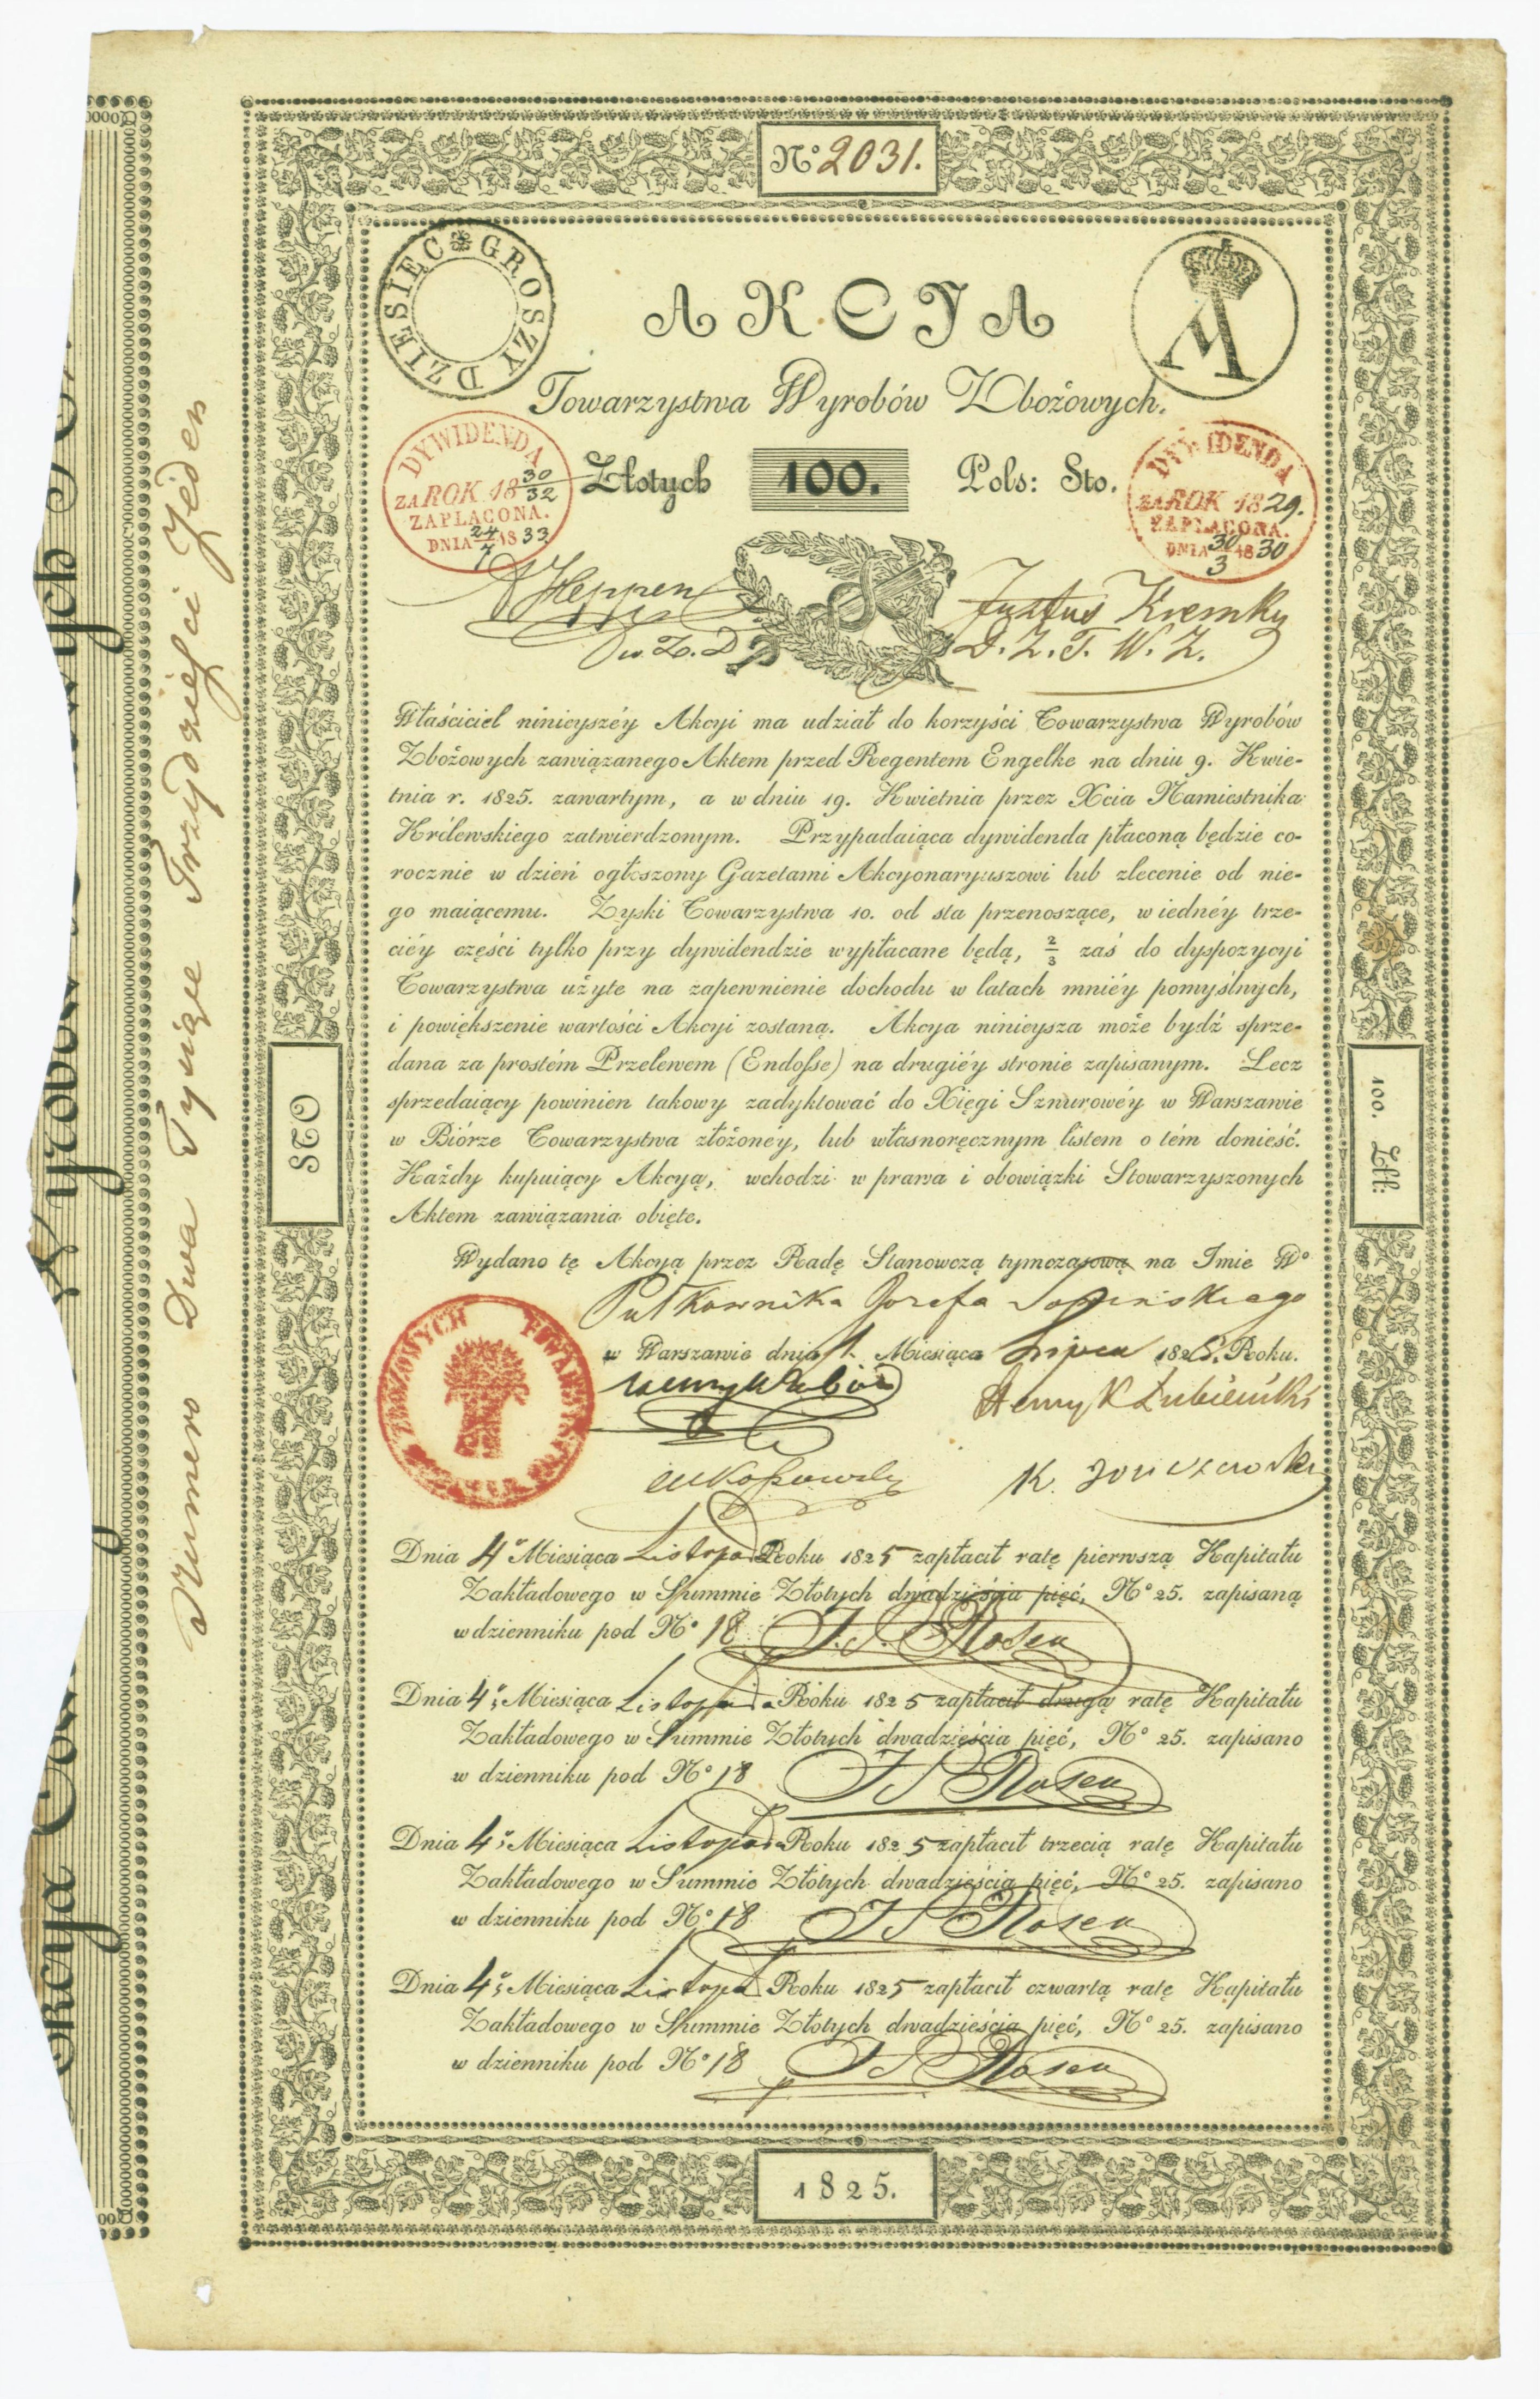 N° 2031.
DZIESIĘC GROSZY
A
AKCJA
Towarzystwa Wyrobów Zbożowych.
DYWIDENDA
ZA ROK 18 30/32
ZAPŁACONA.
DNIA 24/7 18 33
Złotych 100. Pols: Sto.
DYWIDENDA
ZA ROK 18 29.
ZAPŁACONA.
DNIA 30/3 18 30
Heppen
w Z. D
Justus Kremky
D. Z. T. W. Z.
Właściciel ninieyszéy Akcyi ma udział do korzyści Towarzystwa Wyrobów
Zbożowych zawiązanego Aktem przed Regentem Engelke na dniu 9. Kwie-
tnia r. 1825. zawartym, a w dniu 19. Kwietnia przez Xcia Namiestnika
Królewskiego zatwierdzonym. Przypadaiąca dywidenda płaconą będzie co-
rocznie w dzień ogłoszony Gazetami Akcyonaryuszowi lub zlecenie od nie-
go maiącemu. Zyski Towarzystwa 10. od sta przenoszące, w iednéy trze-
ciéy części tylko przy dywidendzie wypłacane będą, 2/3 zaś do dyspozycyi
Towarzystwa użyte na zapewnienie dochodu w latach mniéy pomyślnych,
i powiększenie wartości Akcyi zostaną. Akcya ninieysza może bydź sprze-
dana za prostém Przelewem (Endosse) na drugiéy stronie zapisanym. Lecz
sprzedaiący powinien takowy zadyktować do Xięgi Sznurowéy w Warszawie
w Biórze Towarzystwa złożonéy, lub własnoręcznym listem o tém donieść.
Każdy kupuiący Akcyą, wchodzi w prawa i obowiązki Stowarzyszonych
Aktem zawiązania obięte.
Wydano tę Akcyą przez Radę Stanowczą tymczasową na Imie W°
Pułkownika Jozefa Sowinskiego
w Warszawie dnia 1. Miesiąca Lipca 1825. Roku.
ZBOZOWYCH TOWARZYSTWA
Henryk Łubieński
Dnia 4° Miesiąca Listopad Roku 1825 zapłacił ratę pierwszą Kapitału
Zakładowego w Summie Złotych dwadzieścia pięć, N° 25. zapisaną
w dzienniku pod N° 18 J. S. Rosen
Dnia 4° Miesiąca Listopada Roku 1825 zapłacił drugą ratę Kapitału
Zakładowego w Summie Złotych dwadzieścia pięć, N° 25. zapisano
w dzienniku pod N° 18 J S Rosen
Dnia 4° Miesiąca Listopada Roku 1825 zapłacił trzecią ratę Kapitału
Zakładowego w Summie Złotych dwadzieścia pięć, N° 25. zapisano
w dzienniku pod N° 18 J S Rosen
Dnia 4° Miesiąca Listopad Roku 1825 zapłacił czwartą ratę Kapitału
Zakładowego w Summie Złotych dwadzieścia pięć, N° 25. zapisano
w dzienniku pod N° 18 J S Rosen
1825.
STO
100. Zł:
Numero Dwa Tysiące Trzydzieści Jeden